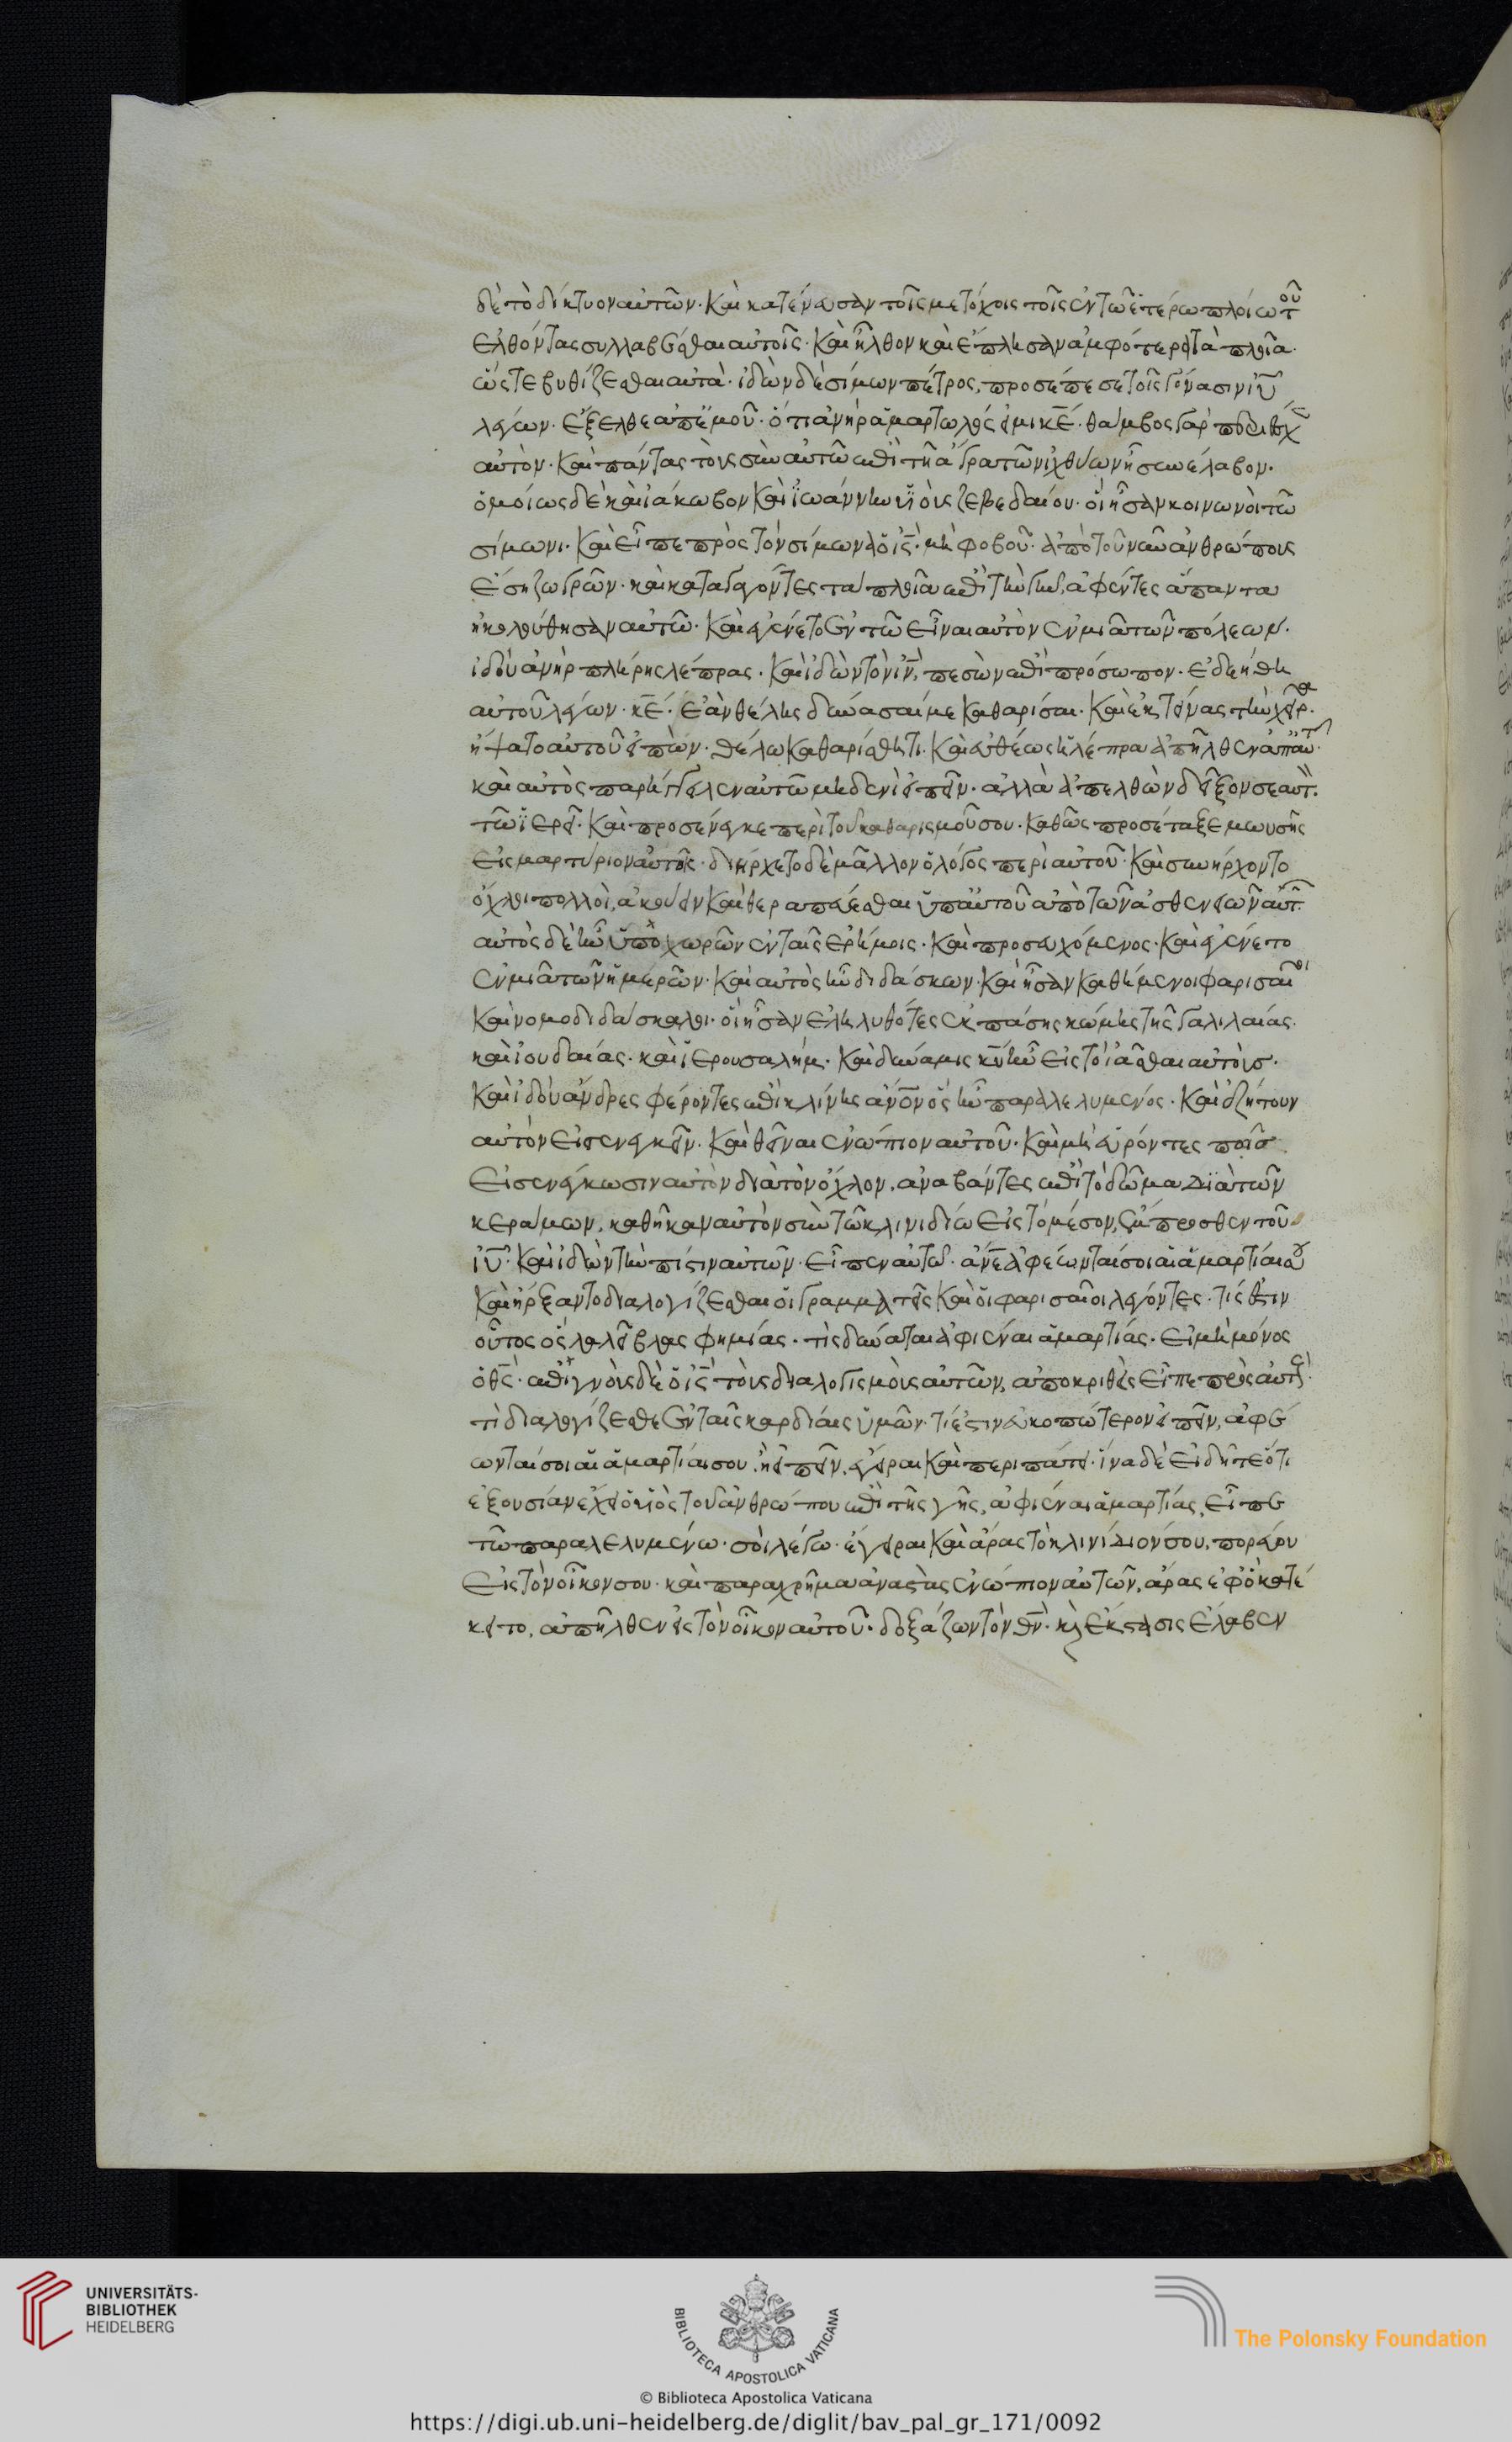 δὲ τὸ δίκτυον αὐτῶν· καὶ κατένευσαν τοῖς μετόχοις τοῖς ἐν τῶ ἑτέρω πλοίω τοῦ
ἐλθόντας συλλαβέσθαι αὐτοῖς· καὶ ἦλθον καὶ ἔπλησαν ἀμφότερα τὰ πλοῖα·
ὥστε βυθίζεσθαι αὐτά· ἰδὼν δὲ σίμων πέτρος, προσέπεσε τοῖς γόνασιν ἰῦ
λέγων· ἔξελθε ἀπ' ἐμοῦ· ὅτι ἀνὴρ ἁμαρτωλός εἰμι κε̄· θάμβος γὰρ περιέσχεν
αὐτὸν· καὶ πάντας τοὺς σὺν αὐτῶ ἐπὶ τῆ ἄγρα τῶν ἰχθύων ἧ συνέλαβον·
ὁμοίως δὲ καὶ ἰάκωβον καὶ ἰωάννην υἱοὺς ζεβεδαίου· οἳ ἦσαν κοινωνοὶ τῶ
σίμωνι· καὶ εἶπε πρὸς τὸν σίμωνα ὁ ις̄· μὴ φοβοῦ· ἀπὸ τοῦ νῦν ἀνθρώπους
ἔση ζωγρῶν· καὶ καταγαγόντες τὰ πλοῖα ἐπὶ τὴν γῆν, ἀφέντες ἅπαντα
ἠκολούθησαν αὐτῶ· καὶ ἐγένετο ἐν τῶ εἶναι αὐτὸν ἐν μιᾶ τῶν πόλεων·
ἰδοὺ ἀνὴρ πλήρης λέπρας· καὶ ἰδὼν τὸν ιν̄, πεσὼν ἐπὶ πρόσωπον· ἐδεήθη
αὐτοῦ λέγων· κε̄· ἐὰν θέλης δύνασαί με καθαρίσαι· καὶ ἐκτείνας τὴν χεῖρα·
ἥψατο αὐτοῦ εἰπών· θέλω καθαρίσθητι· καὶ εὐθέως ἡ λέπρα ἀπῆλθεν ἀπ' αὐτοῦ·
καὶ αὐτὸς παρήγγειλεν αὐτῶ μηδενὶ εἰπεῖν· ἀλλὰ ἀπελθὼν δεῖξον σεαυτὸν
τῶ ἱερεῖ· καὶ προσένεγκε περὶ τοῦ καθαρισμοῦ σου· καθὼς προσέταξε μωυσῆς
εἰς μαρτύριον αὐτοῖς· διήρχετο δὲ μᾶλλον ὁ λόγος περὶ αὐτοῦ· καὶ συνήρχοντο
ὄχλοι πολλοὶ, ἀκούειν καὶ θεραπεύεσθαι ὑπ' αὐτοῦ ἀπὸ τῶν ἀσθενειῶν αὐτῶν·
αὐτὸς δὲ ἦν ὑποχωρῶν ἐν ταῖς ἐρήμοις· καὶ προσευχόμενος· καὶ ἐγένετο
ἐν μιᾶ τῶν ἡμερῶν· καὶ αὐτὸς ἦν διδάσκων· καὶ ἦσαν καθήμενοι φαρισαῖοι
καὶ νομοδιδάσκαλοι· οἳ ἦσαν ἐληλυθότες ἐκ πάσης κώμης τῆς γαλιλαίας·
καὶ ἰουδαίας· καὶ ἱερουσαλήμ· καὶ δύναμις κῡ ἦν εἰς τὸ ἰᾶσθαι αὐτούς·
καὶ ἰδοὺ ἄνδρες φέροντες ἐπὶ κλίνης ἀν̄ον ὃς ἦν παραλελυμένος· καὶ ἐζήτουν
αὐτὸν εἰσενεγκεῖν· καὶ θεῖναι ἐνώπιον αὐτοῦ· καὶ μὴ εὑρόντες ποίας
εἰσενέγκωσιν αὐτὸν διὰ τὸν ὄχλον, ἀναβάντες ἐπὶ τὸ δῶμα διὰ τῶν
κεράμων, καθῆκαν αὐτὸν σὺν τῶ κλινιδίω εἰς τὸ μέσον, ἔμπροσθεν τοῦ
ἰῦ· καὶ ἰδὼν τὴν πίστιν αὐτῶν· εἶπεν αὐτῶ· ἄνε̄ ἀφέωνταί σοι αἱ ἁμαρτίαι σου
καὶ ἤρξαντο διαλογίζεσθαι οἱ γραμματεῖς καὶ οἱ φαρισαῖοι λέγοντες· τίς ἐστιν
οὗτος ὃς λαλεῖ βλασφημίας· τίς δύναται ἀφιέναι ἁμαρτίας· εἰ μὴ μόνος
ὁ θς̄· ἐπιγνοὺς δὲ ὁ ις̄ τοὺς διαλογισμοὺς αὐτῶν, ἀποκριθεὶς εἶπε πρὸς αὐτούς·
τί διαλογίζεσθε ἐν ταῖς καρδίαις ὑμῶν· τί ἐστιν εὐκοπώτερον εἰπεῖν, ἀφέ
ωνταί σοι αἱ ἁμαρτίαι σου, ἢ εἰπεῖν, ἔγειραι καὶ περιπάτει· ἵνα δὲ εἰδῆτε ὅτι
ἐξουσίαν ἔχει ὁ υἱὸς τοῦ ἀνθρώπου ἐπὶ τῆς γῆς, ἀφιέναι ἁμαρτίας, εἶπε
τῶ παραλελυμένω· σοὶ λέγω· ἔγειραι καὶ ἄρας τὸ κλινίδιόν σου, πορεύου
εἰς τὸν οἶκον σου· καὶ παραχρῆμα ἀναστὰς ἐνώπιον αὐτῶν, ἄρας ἐφ' ὃ κατέ
κειτο, ἀπῆλθεν εἰς τὸν οἶκον αὐτοῦ· δοξάζων τὸν θν̄· κ(αὶ) ἔκστασις ἔλαβεν
UNIVERSITÄTS-
BIBLIOTHEK
HEIDELBERG
BIBLIOTECA APOSTOLICA VATICANA
The Polonsky Foundation
© Biblioteca Apostolica Vaticana
https://digi.ub.uni-heidelberg.de/diglit/bav_pal_gr_171/0092